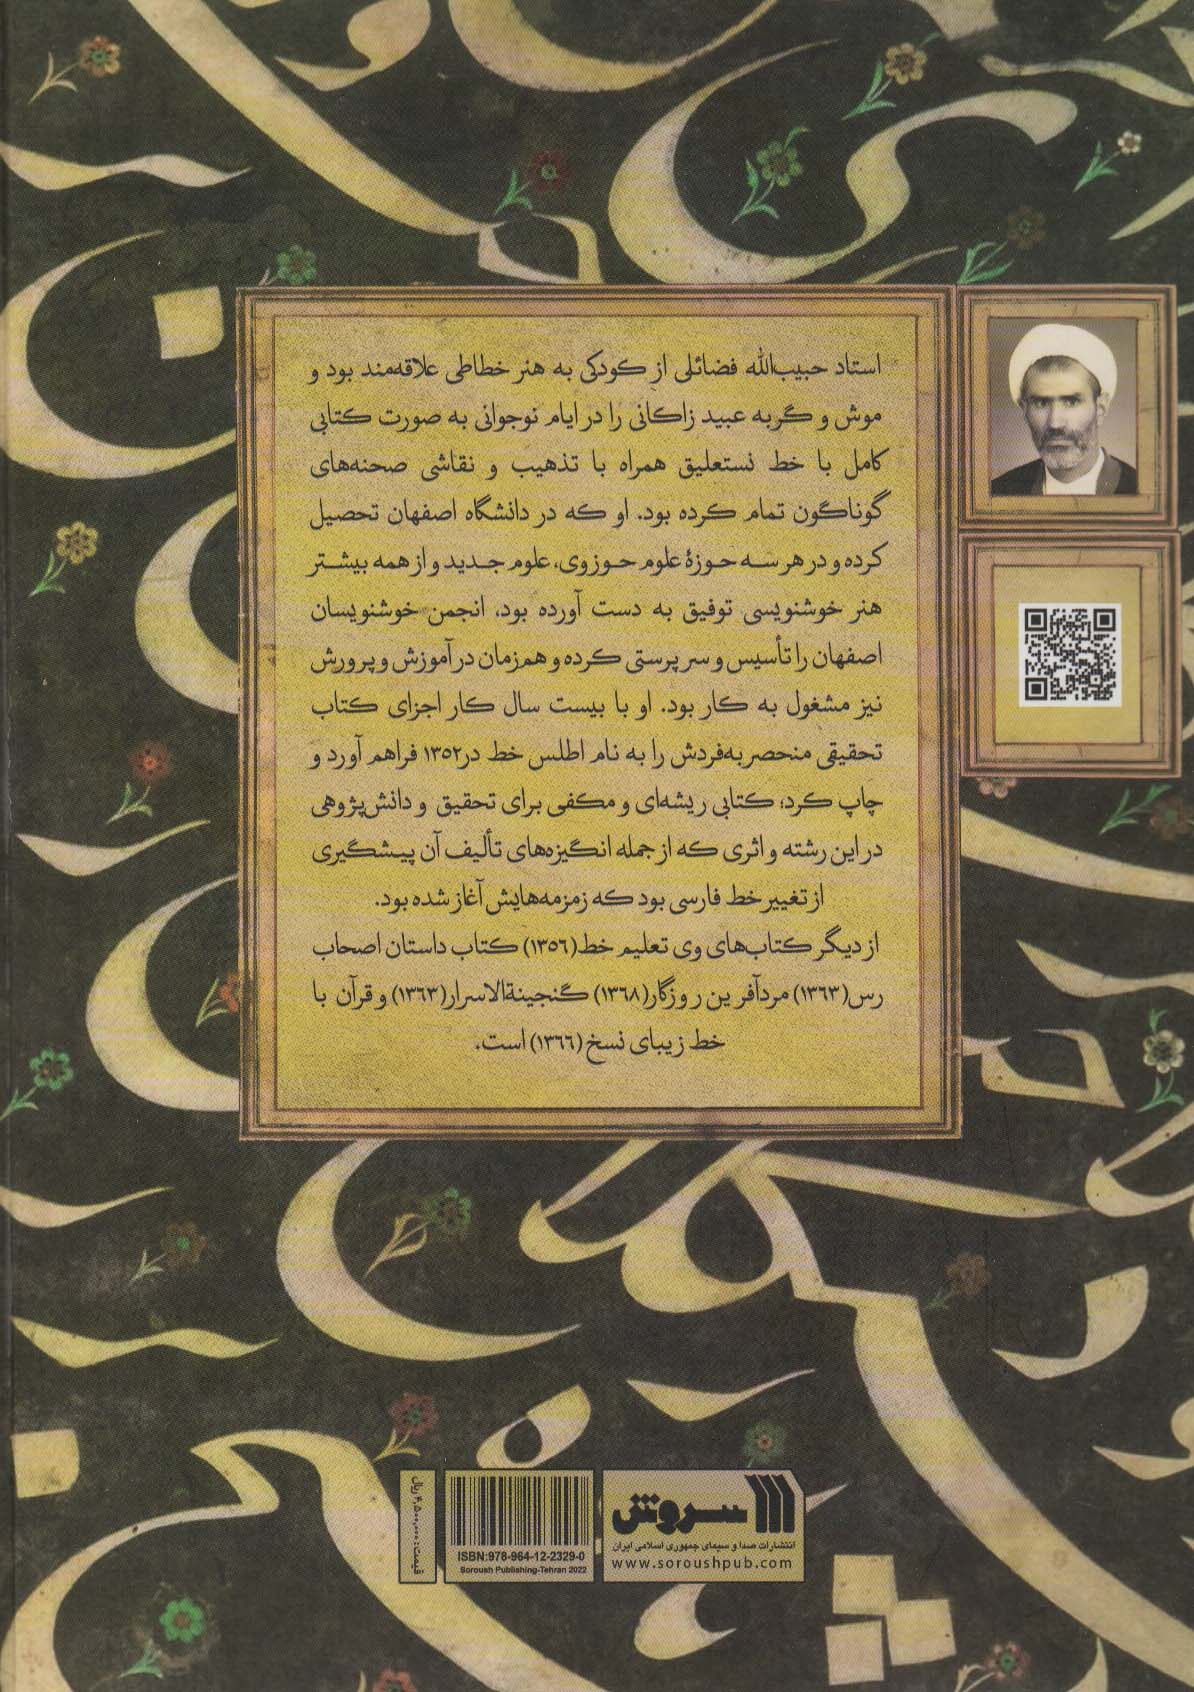 استاد حبیب‌الله فضائلی از کودکی به هنر خطاطی علاقه‌مند بود و
موش و گربه عبید زاکانی را در ایام نوجوانی به صورت کتابی
کامل با خط نستعلیق همراه با تذهیب و نقاشی صحنه‌های
گوناگون تمام کرده بود. او که در دانشگاه اصفهان تحصیل
کرده و در هر سه حوزهٔ علوم حوزوی، علوم جدید و از همه بیشتر
هنر خوشنویسی توفیق به دست آورده بود، انجمن خوشنویسان
اصفهان را تأسیس و سرپرستی کرده و هم‌زمان در آموزش و پرورش
نیز مشغول به کار بود. او با بیست سال کار اجزای کتاب
تحقیقی منحصربه‌فردش را به نام اطلس خط در ۱۳۵۲ فراهم آورد و
چاپ کرد؛ کتابی ریشه‌ای و مکفی برای تحقیق و دانش‌پژوهی
در این رشته و اثری که از جمله انگیزه‌های تألیف آن پیشگیری
از تغییر خط فارسی بود که زمزمه‌هایش آغاز شده بود.
از دیگر کتاب‌های وی تعلیم خط(۱۳۵۶) کتاب داستان اصحاب
رس(۱۳۶۳) مردآفرین روزگار(۱۳۶۸) گنجینةالاسرار(۱۳۶۳) و قرآن با
خط زیبای نسخ (۱۳۶۶) است.
سروش
انتشارات صدا و سیمای جمهوری اسلامی ایران
www.soroushpub.com
ISBN:978-964-12-2329-0
Soroush Publishing-Tehran 2022
قیمت: ۴,۵۰۰,۰۰۰ ریال